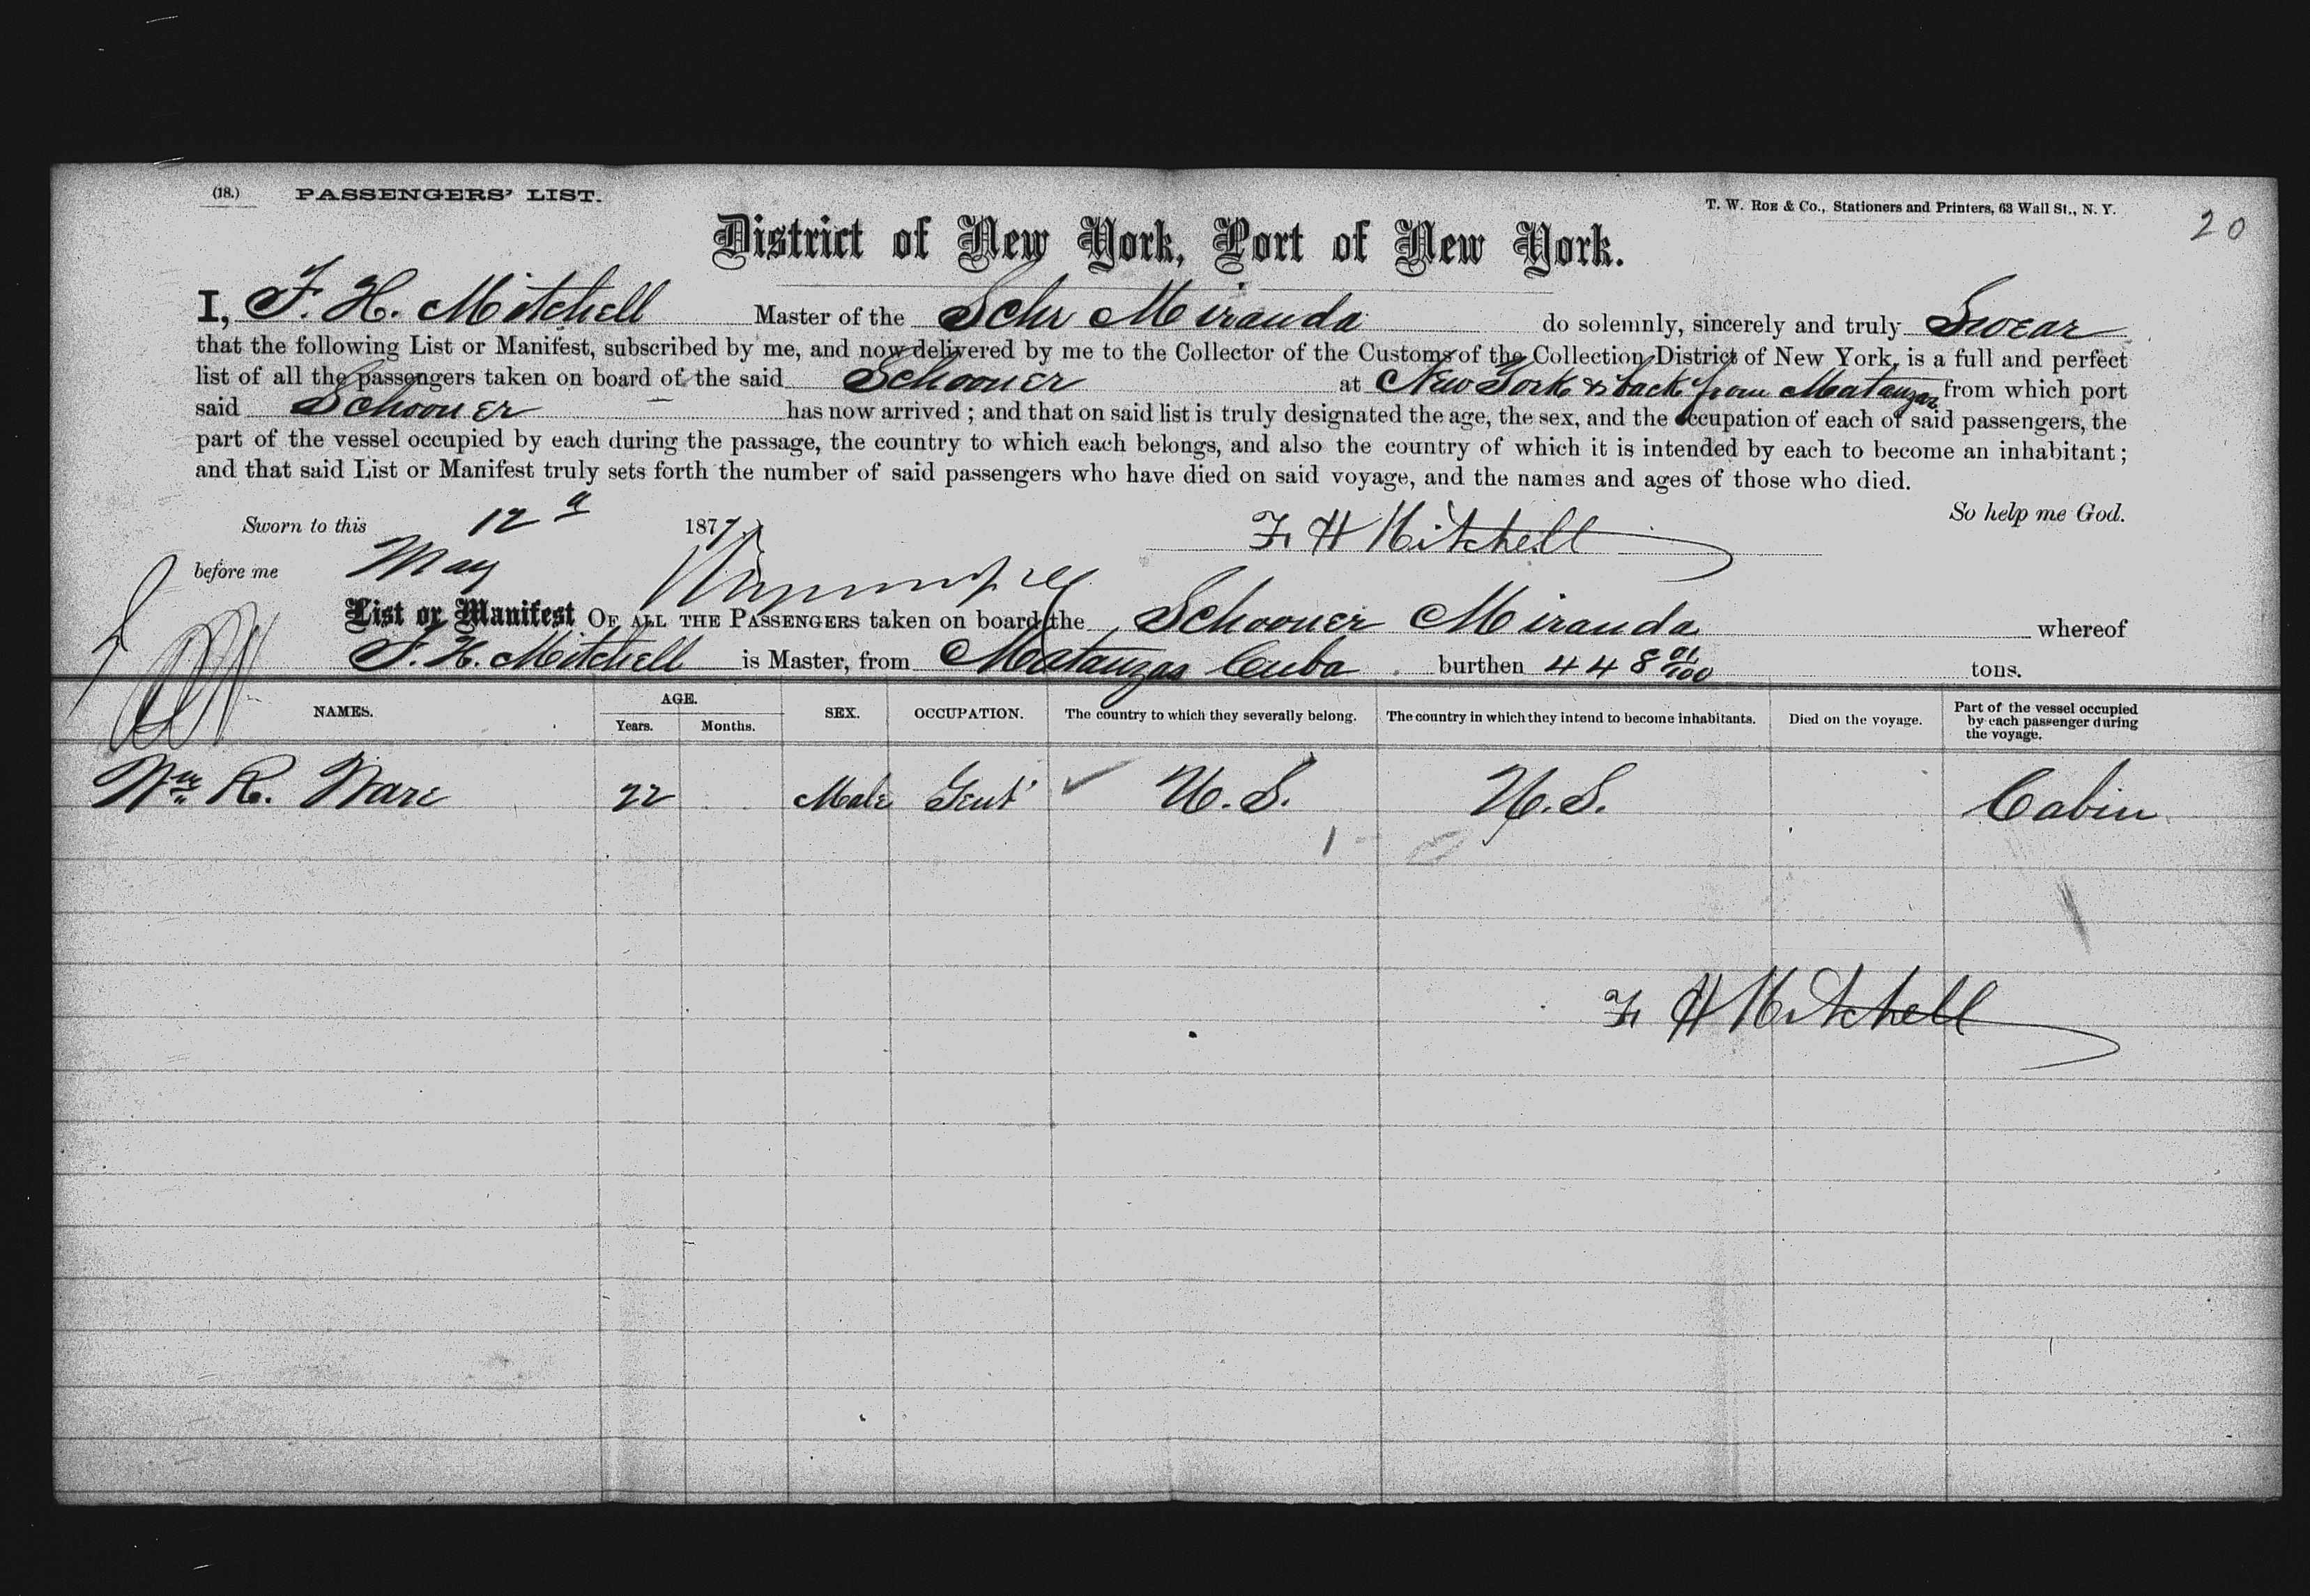 (18.) PASSENGERS' LIST.
T. W. ROE & Co., Stationers and Printers, 63 Wall St., N. Y.
20
District of New York, Port of New York.
I, F. H. Mitchell Master of the Schr Miranda do solemnly, sincerely and truly Swear
that the following List or Manifest, subscribed by me, and now delivered by me to the Collector of the Customs of the Collection District of New York, is a full and perfect
list of all the passengers taken on board of the said Schooner at New York & back from Matanzas from which port
said Schooner has now arrived; and that on said list is truly designated the age, the sex, and the occupation of each of said passengers, the
part of the vessel occupied by each during the passage, the country to which each belongs, and also the country of which it is intended by each to become an inhabitant;
and that said List or Manifest truly sets forth the number of said passengers who have died on said voyage, and the names and ages of those who died.
So help me God.
Sworn to this 12 1877 F. H Mitchell
before me May
List or Manifest OF ALL THE PASSENGERS taken on board the Schooner Miranda whereof
F. H. Mitchell is Master, from Matanzas Cuba burthen 448 01/100 tons.
NAMES. AGE. Years. Months. SEX. OCCUPATION. The country to which they severally belong. The country in which they intend to become inhabitants. Died on the voyage. Part of the vessel occupied by each passenger during the voyage.
Wm R. Ware 22 Male Gent U.S. U.S. Cabin
1
F. H Mitchell